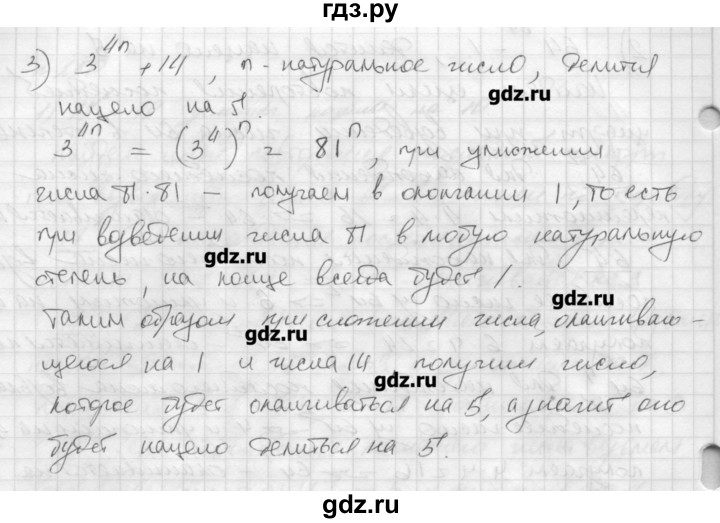 гдз.ру
3) 3^{4n} + 14, n - натуральное число, делится
нацело на 5.
gdz.ru
3^{4n} = (3^4)^n = 81^n, при умножении
числа 81·81 — получаем в окончании 1, то есть
при возведении числа 81 в любую натуральную
gdz.ru
степень, на конце всегда будет 1.
Таким образом при сложении числа, оканчиваю-
gdz.ru
щегося на 1 и числа 14, получим число,
gdz.ru
которое будет оканчиваться на 5, а значит оно
будет нацело делиться на 5.
gdz.ru